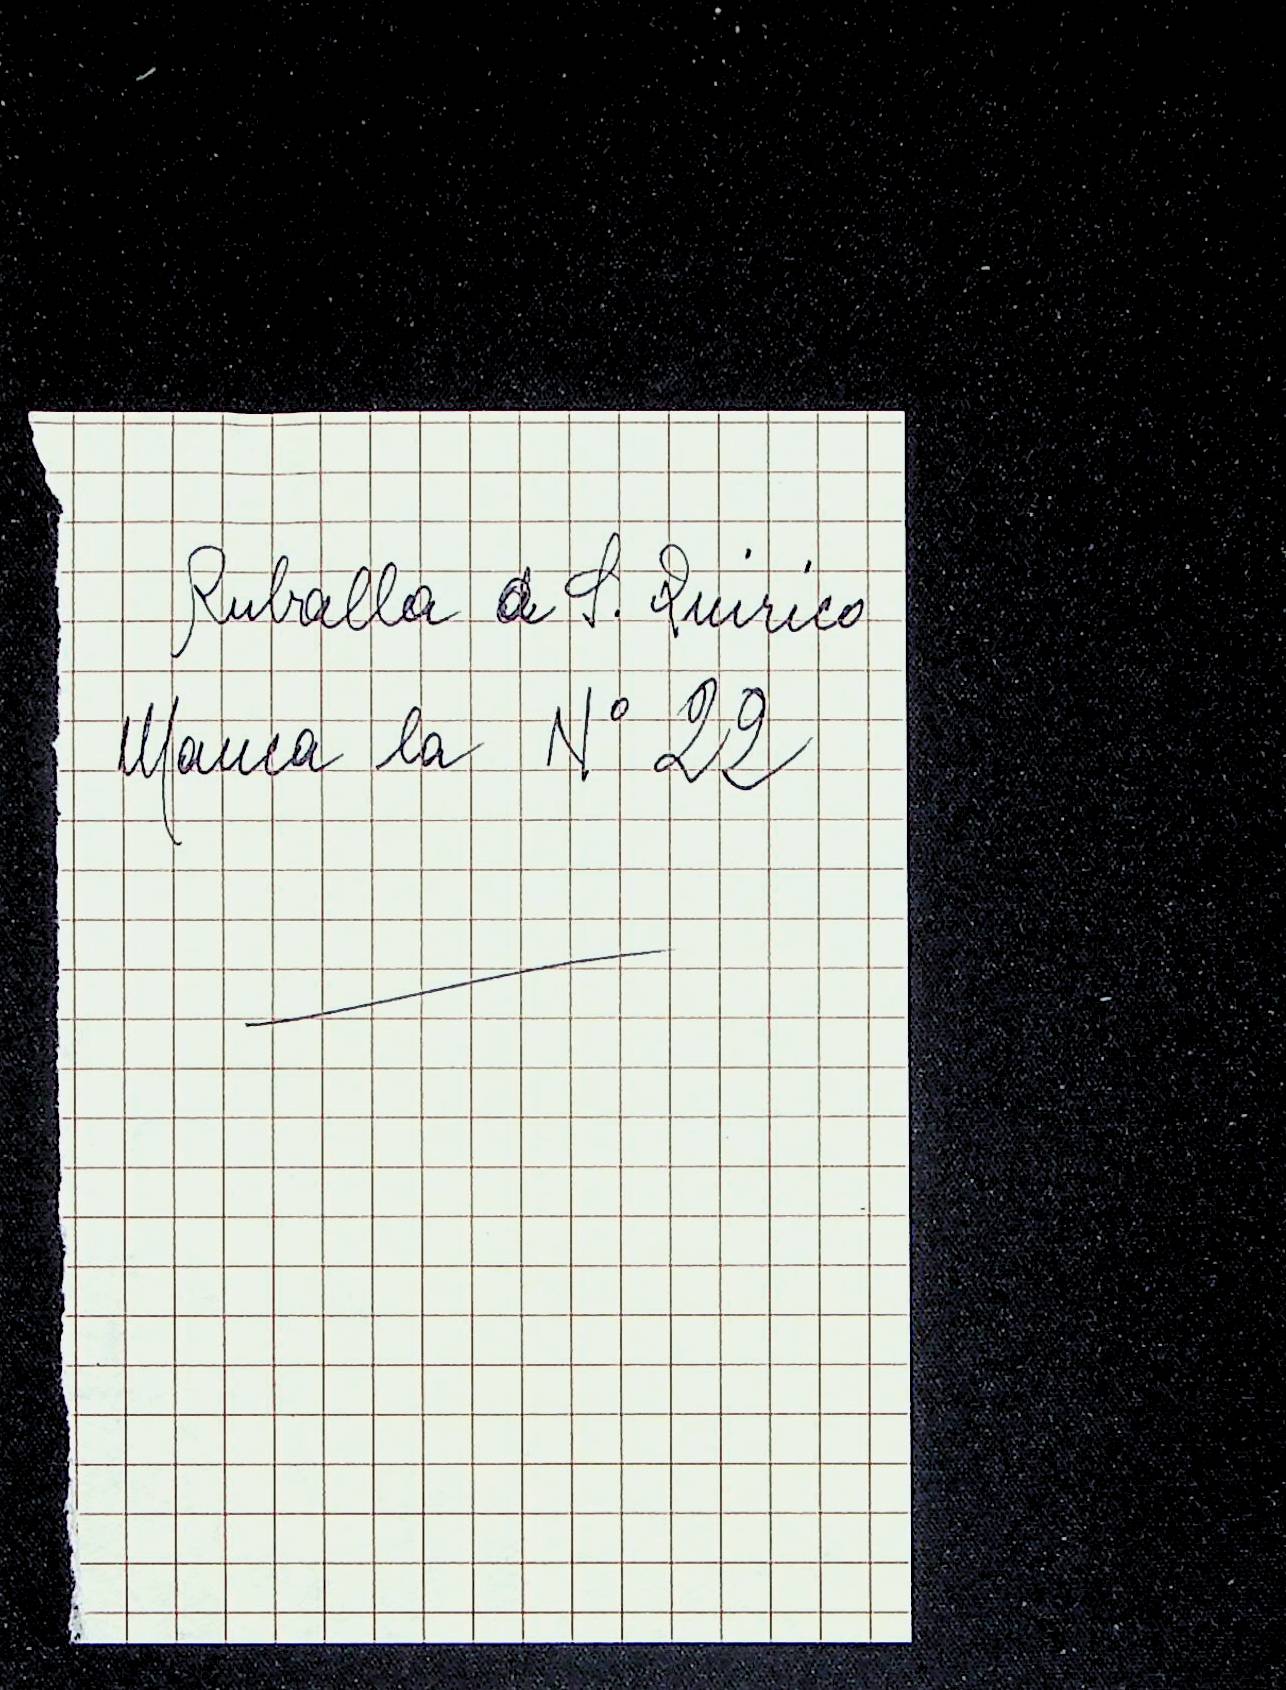 Ruballa a S. Quirico
Manca la N° 22